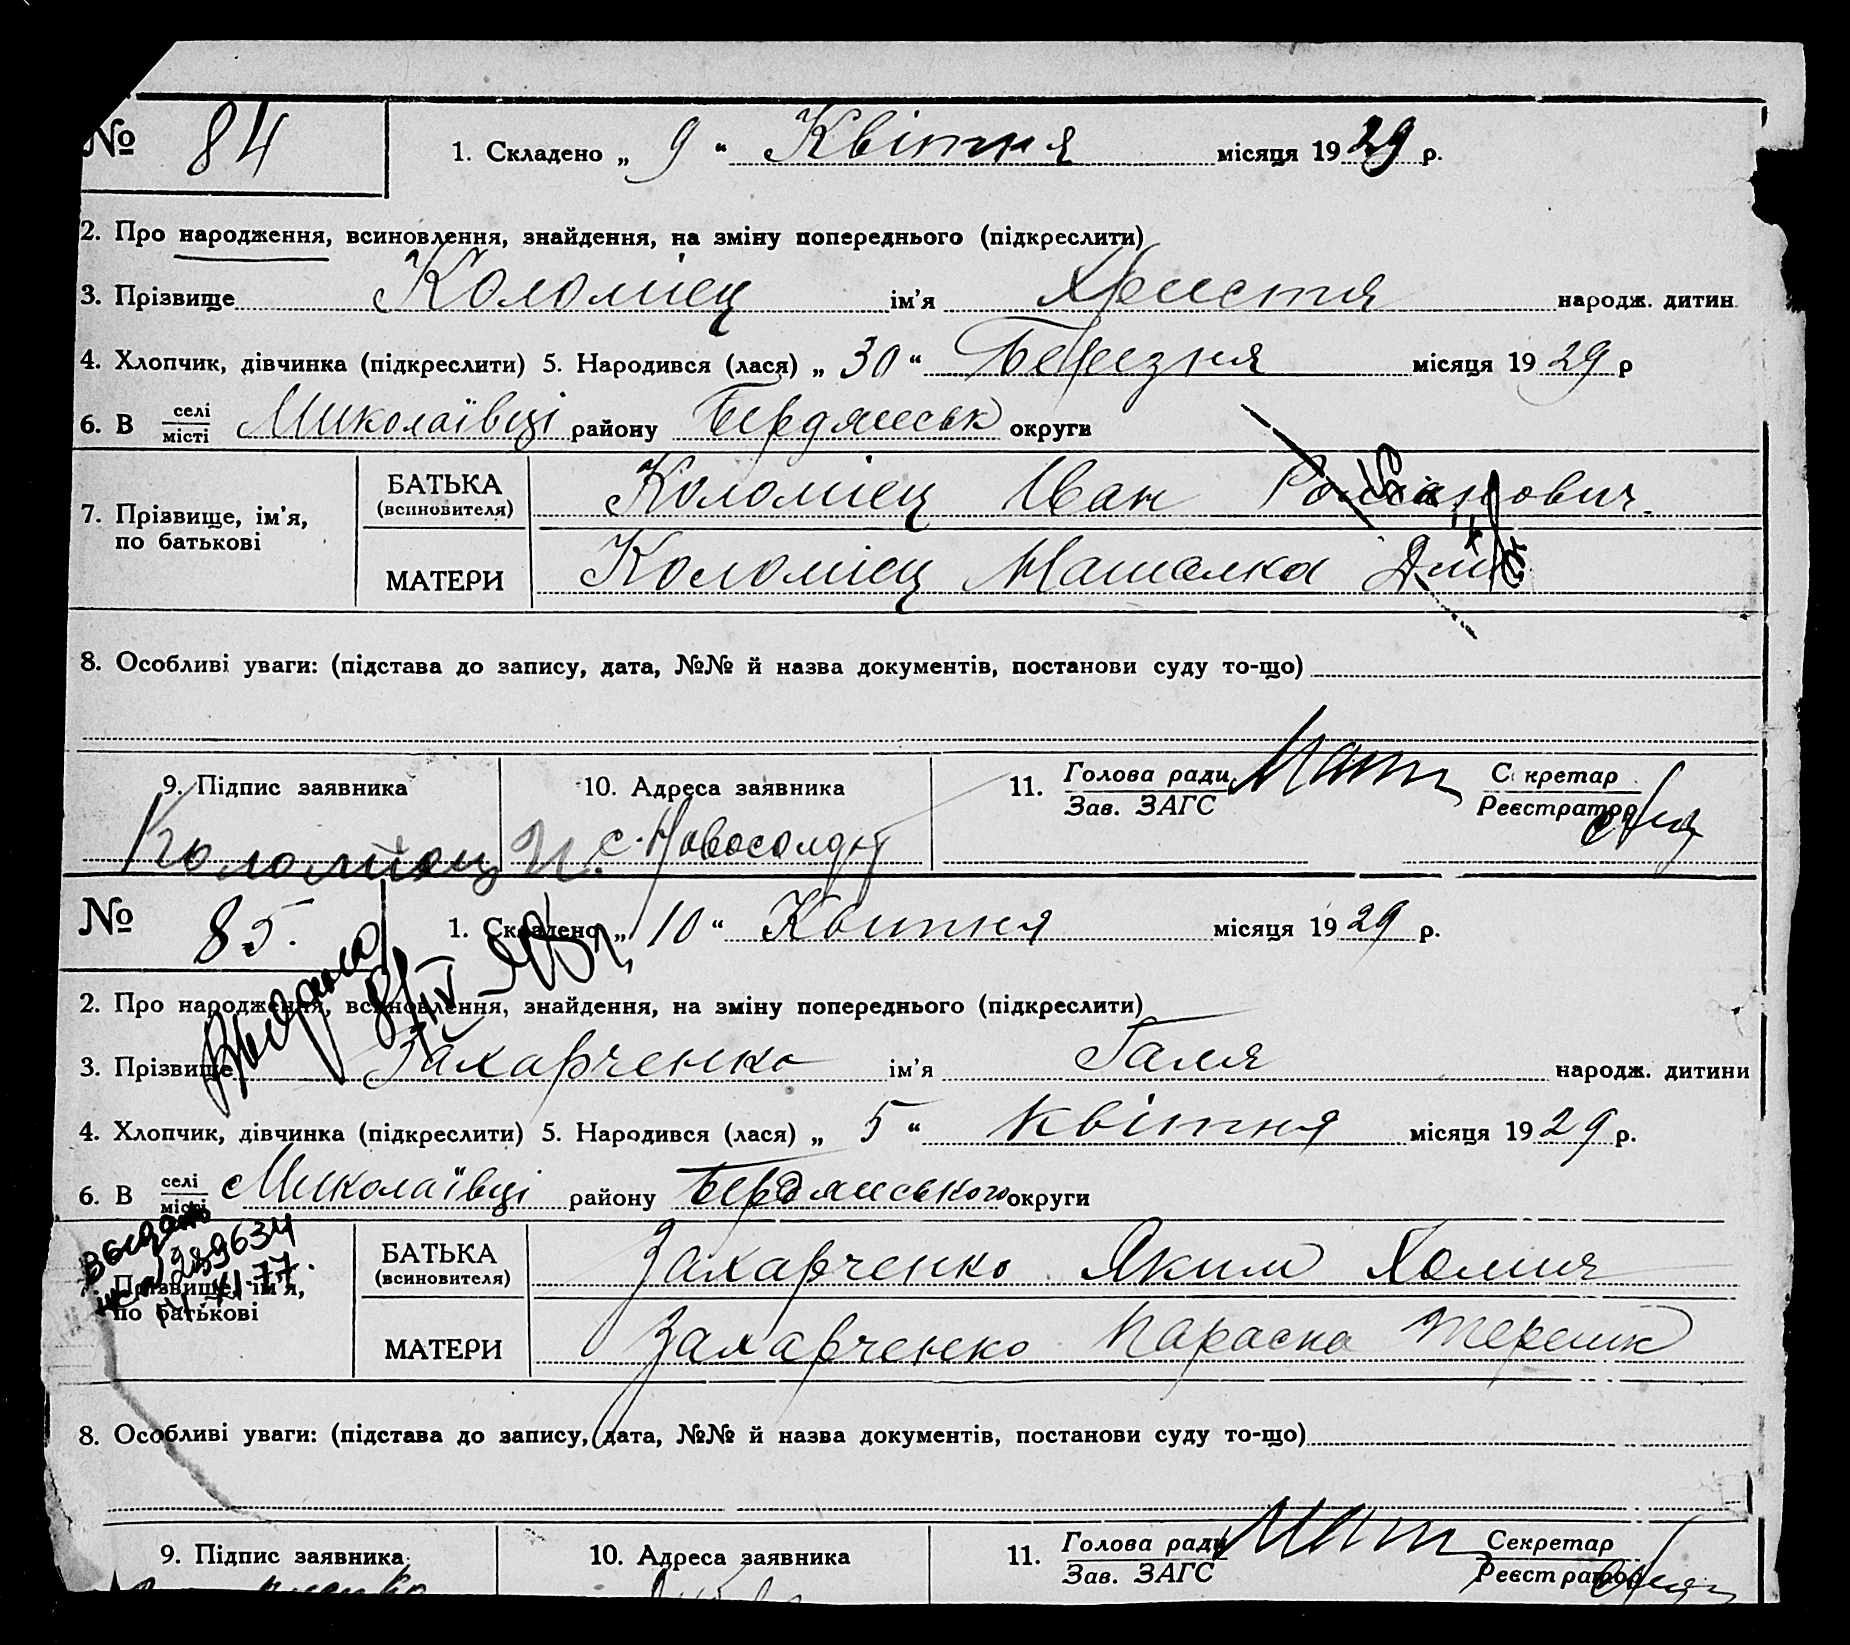 № 84 1. Складено „ 9 “ Квітня місяця 1929 р.
2. Про народження, всиновлення, знайдення, на зміну попереднього (підкреслити)
3. Прізвище Коломієц ім’я Христя народж. дитин
4. Хлопчик, дівчинка (підкреслити) 5. Народився (лася) „ 30 “ Березня місяця 1929 р
6. В селі/місті Миколаївці району Бердянськ округи
7. Прізвище, ім’я, по батькові
БАТЬКА (всиновителя) Коломієц Иван Романович
МАТЕРИ Коломієц Наталка
8. Особливі уваги: (підстава до запису, дата, №№ й назва документів, постанови суду то-що)
9. Підпис заявника 10. Адреса заявника 11. Голова ради/Зав. ЗАГС Секретар/Реєстратор
Коломйец И. с.
№ 85. 1. Складено „ 10 “ Квитня місяця 1929 р.
2. Про народження, всиновлення, знайдення, на зміну попереднього (підкреслити)
3. Прізвище Захарченко ім’я Галя народж. дитини
4. Хлопчик, дівчинка (підкреслити) 5. Народився (лася) „ 5 “ Квітня місяця 1929 р.
6. В селі/місті Миколаївці району Бердянського округи
7. Прізвище, ім’я, по батькові
БАТЬКА (всиновителя) Захарченко Яким Хомич
МАТЕРИ Захарченко Параска
8. Особливі уваги: (підстава до запису, дата, №№ й назва документів, постанови суду то-що)
9. Підпис заявника 10. Адреса заявника 11. Голова ради/Зав. ЗАГС Секретар/Реєстратор